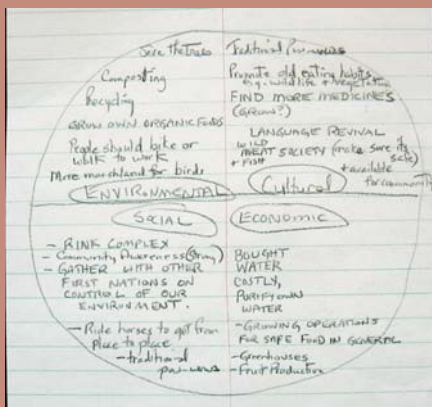 Save the trees
Composting
Recycling
GROW OWN ORGANIC FOODS
People should bike or
walk to work
More marshland for birds
ENVIRONMENTAL
Traditional Pow-wows
Promote old eating habits
e.g. wildlife + vegetation
FIND MORE MEDICINES
(GROW?)
LANGUAGE REVIVAL
WILD
MEAT SOCIETY (make sure its
+ FISH safe)
+ available
for community
Cultural
SOCIAL
- RINK COMPLEX
- Community Awareness
- GATHER WITH OTHER
FIRST NATIONS ON
CONTROL OF OUR
ENVIRONMENT.
- Ride horses to get from
place to place
- traditional
pow-wows
ECONOMIC
BOUGHT
WATER
COSTLY,
PURIFY OWN
WATER
- GROWING OPERATIONS
FOR SAFE FOOD IN GENERAL
- Greenhouses
- Fruit Production